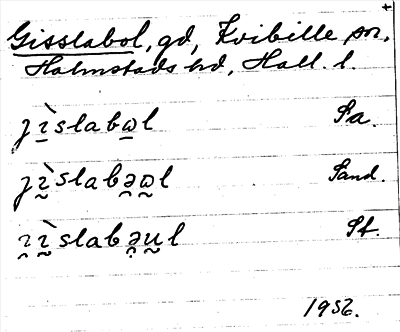 +
Gisslabol, gd, Kvibille sn,
Halmstads hd, Hall. l.
ɟɪ̠̀slabɷ̠l Sa.
ɟɪ̰̀slabə̯ɷ̰l Sand.
ɪ̯ɪ̰̀slabə̯ṵl St.
1956.